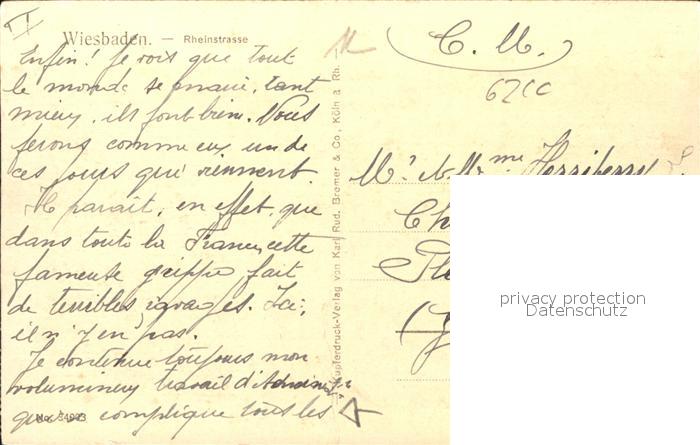 I
Wiesbaden. — Rheinstrasse
Enfin! Je vois que tout
le monde se marie, tant
mieux, ils font bien. Nous
ferons comme eux un de
ces jours qui viennent.
Il parait, en effet, que
dans toute la France cette
fameuse grippe fait
de terribles ravages. Ici,
il n'y en pas.
Je continue toujours mon
volumineux travail d'
No. 34993
que complique tous les
Kupferdruck-Verlag von Karl Rud. Bremer & Co., Köln a. Rh.
C. M.
62CC
Mr. et Mme
Ch
privacy protection
Datenschutz